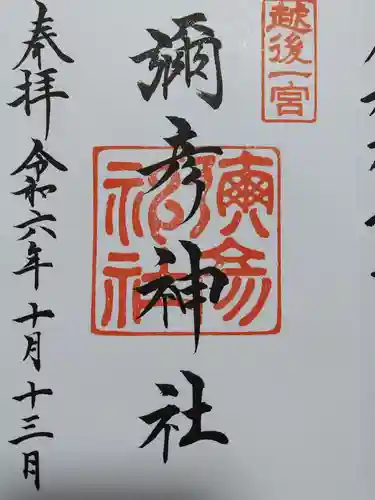 越後一宮
彌彦神社
奉拝 令和六年 十月 十三日